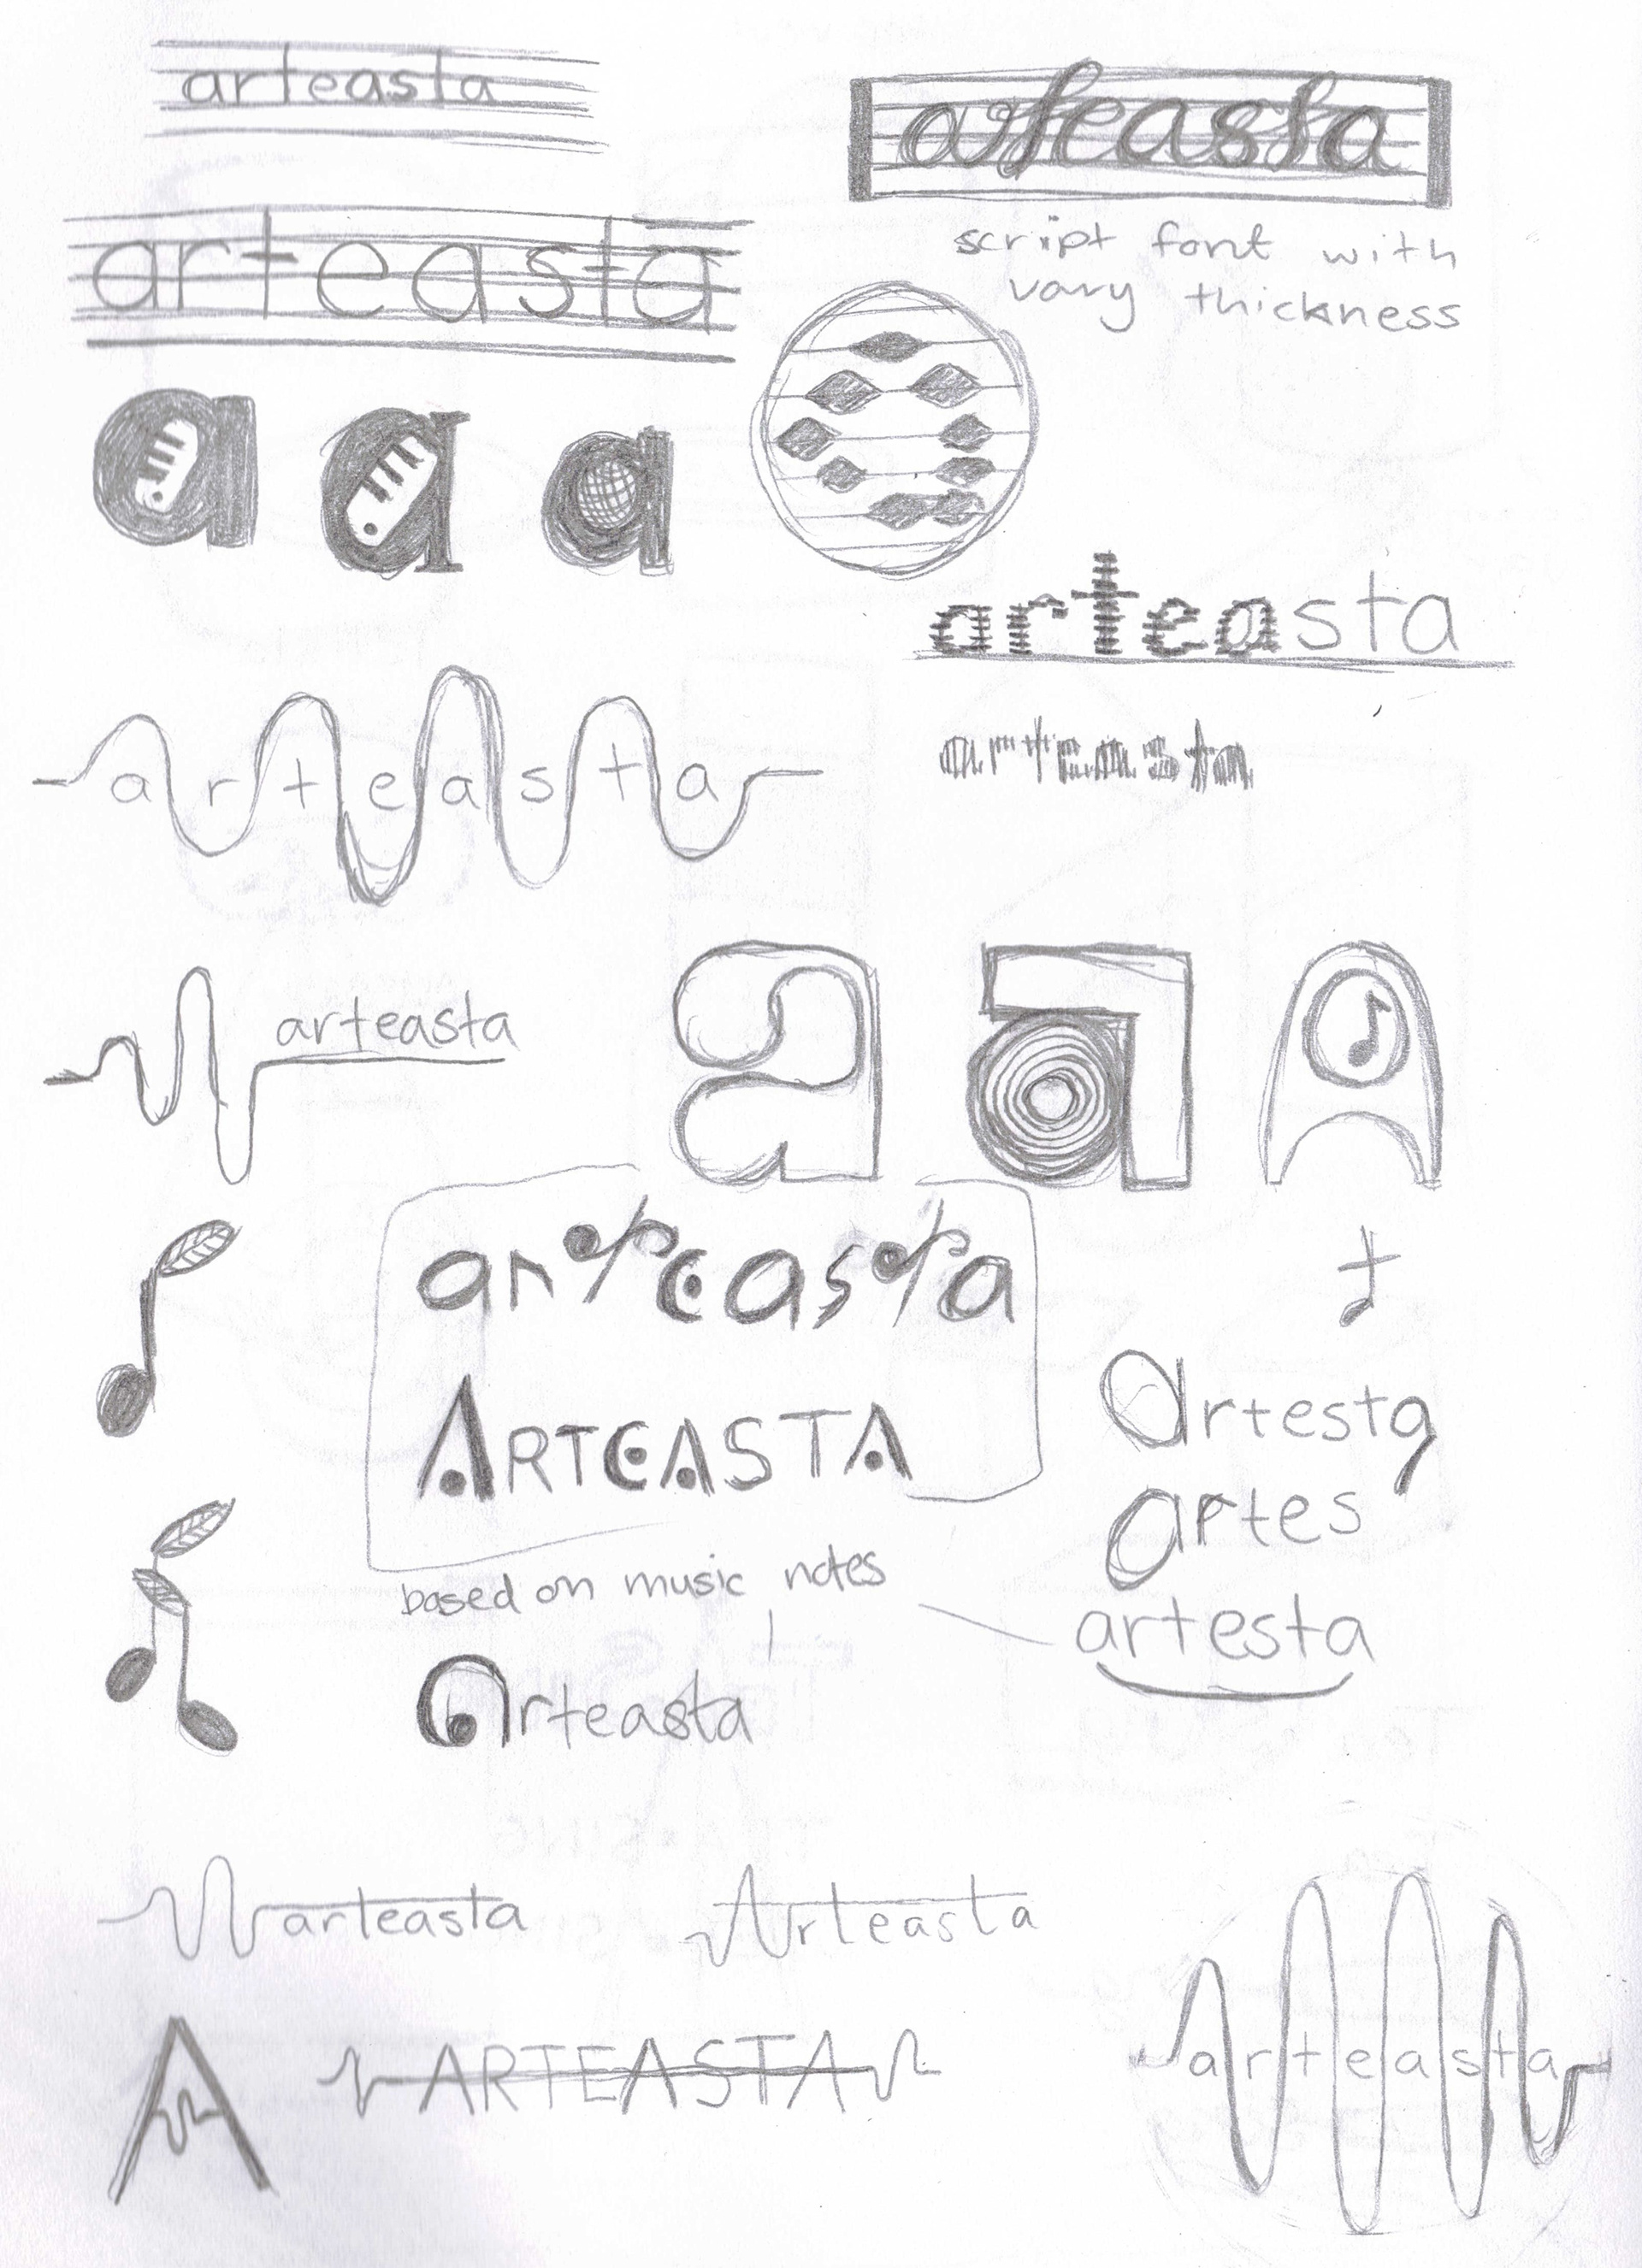 arteasta
arteasta
script font with
vary thickness
arteasta
a a a
arteasta
arteasta
arteasta
arteasta
a a A
arteasta
ARTEASTA
based on music notes
t
artesta
artes
artesta
arteasta
arteasta
Arteasta
arteasta
A
ARTEASTA